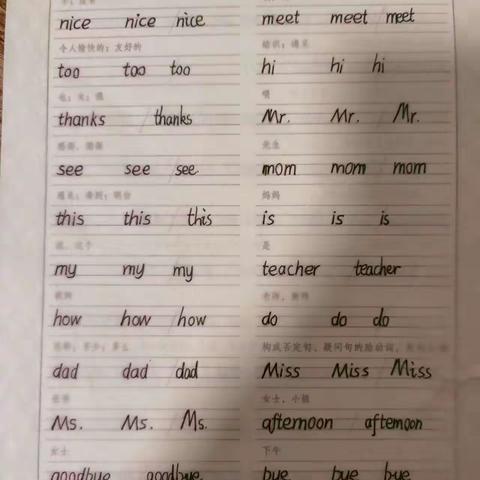 nice nice nice
令人愉快的；友好的
too too too
也；又；很
thanks thanks
感谢，谢谢
see see see
this this this
这，这个
my my my
我的
how how how
dad dad dad
爸爸
Ms. Ms. Ms.
女士
goodbye goodbye
meet meet meet
结识；遇见
hi hi hi
嘿
Mr. Mr. Mr.
先生
mom mom mom
妈妈
is is is
是
teacher teacher
老师，教师
do do do
构成否定句、疑问句的助动词
Miss Miss Miss
女士，小姐
afternoon afternoon
下午
bye bye bye